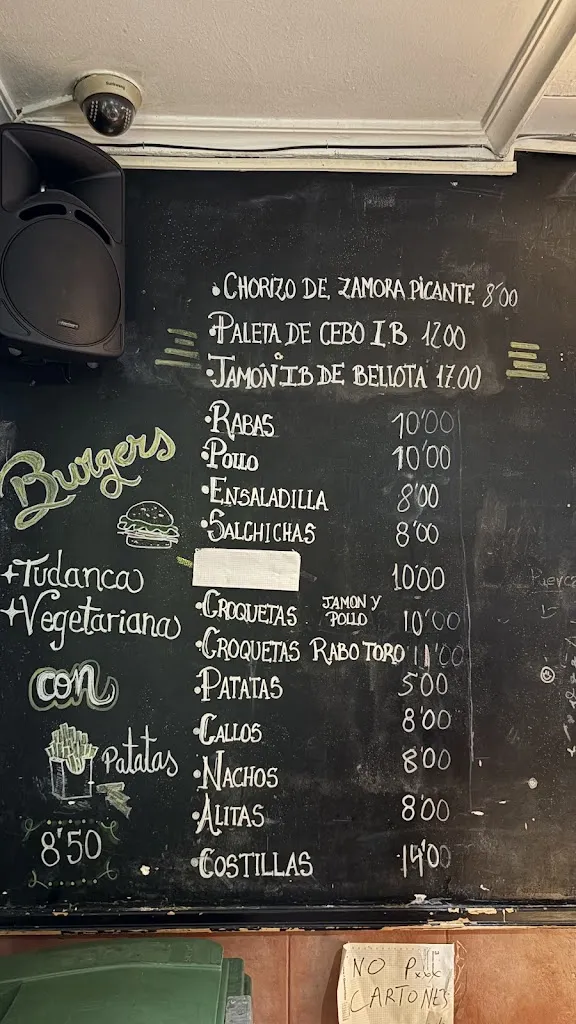 • CHORIZO DE ZAMORA PICANTE 8'00
• PALETA DE CEBO I.B 12.00
• JAMÓN I.B DE BELLOTA 17.00
• RABAS 10'00
• POLLO 10'00
• ENSALADILLA 8'00
• SALCHICHAS 8'00
10'00
• CROQUETAS JAMON Y POLLO 10'00
• CROQUETAS RABO TORO 11'00
• PATATAS 5'00
• CALLOS 8'00
• NACHOS 8'00
• ALITAS 8'00
• COSTILLAS 14'00
Burgers
+Tudanca
+Vegetariana
con
Patatas
8'50
NO
CARTONES